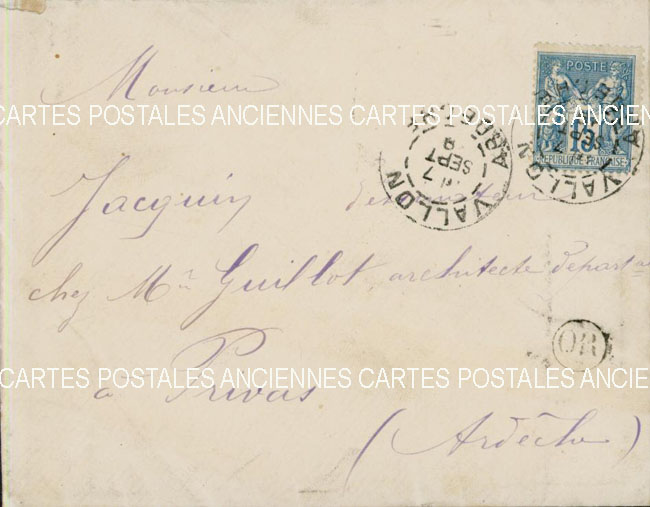 Monsieur
CARTES POSTALES ANCIENNES CARTES POSTALES ANCIENNES
Jacquin dessinateur
chez Mr Guillot architecte départal
CARTES POSTALES ANCIENNES CARTES POSTALES ANCIEN
à Privas
(Ardèche)
POSTE
15
REPUBLIQUE FRANÇAISE
VALLON
7
SEPT
VALLON
7
SEPT
OR